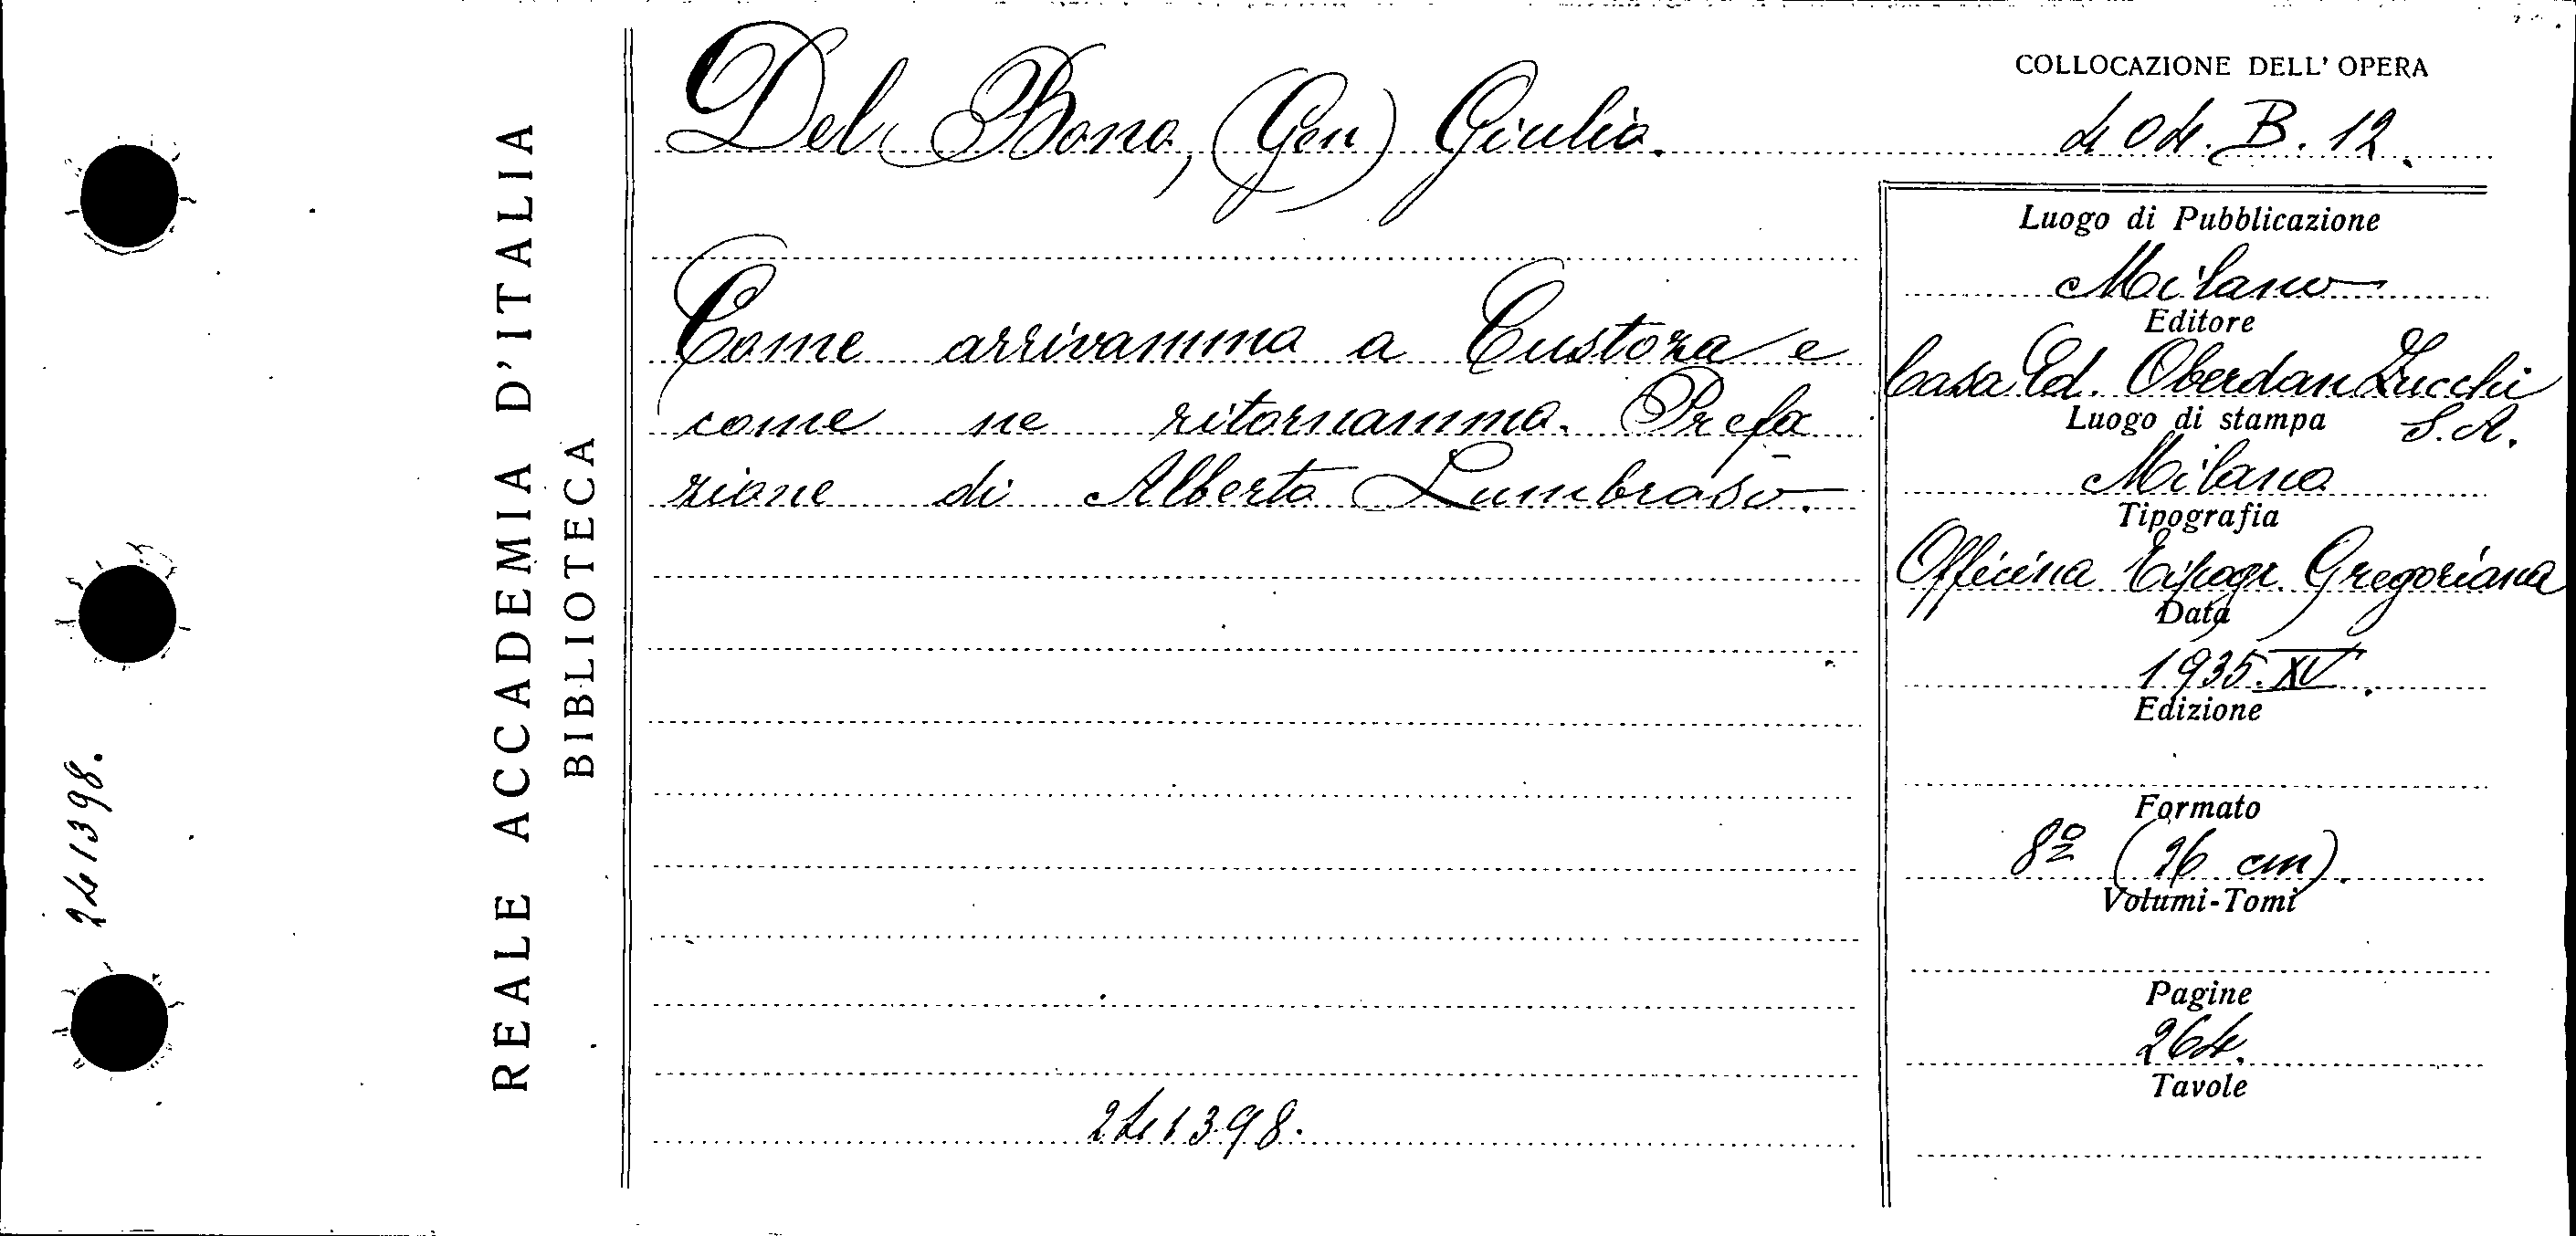 REALE ACCADEMIA D'ITALIA
BIBLIOTECA
241398.
Del Bono, (Gen) Giulio.
Come arrivammo a Custoza e
come ne ritornammo. Prefa
zione di Alberto Lumbroso.
241398.
COLLOCAZIONE DELL' OPERA
404. B. 12.
Luogo di Pubblicazione
Milano
Editore
Casa Ed. Oberdan Zucchi
S. A.
Luogo di stampa
Milano
Tipografia
Officina Tipogr. Gregoriana
Data
1935. XV.
Edizione
Formato
8º (26 cm).
Volumi-Tomi
Pagine
264.
Tavole